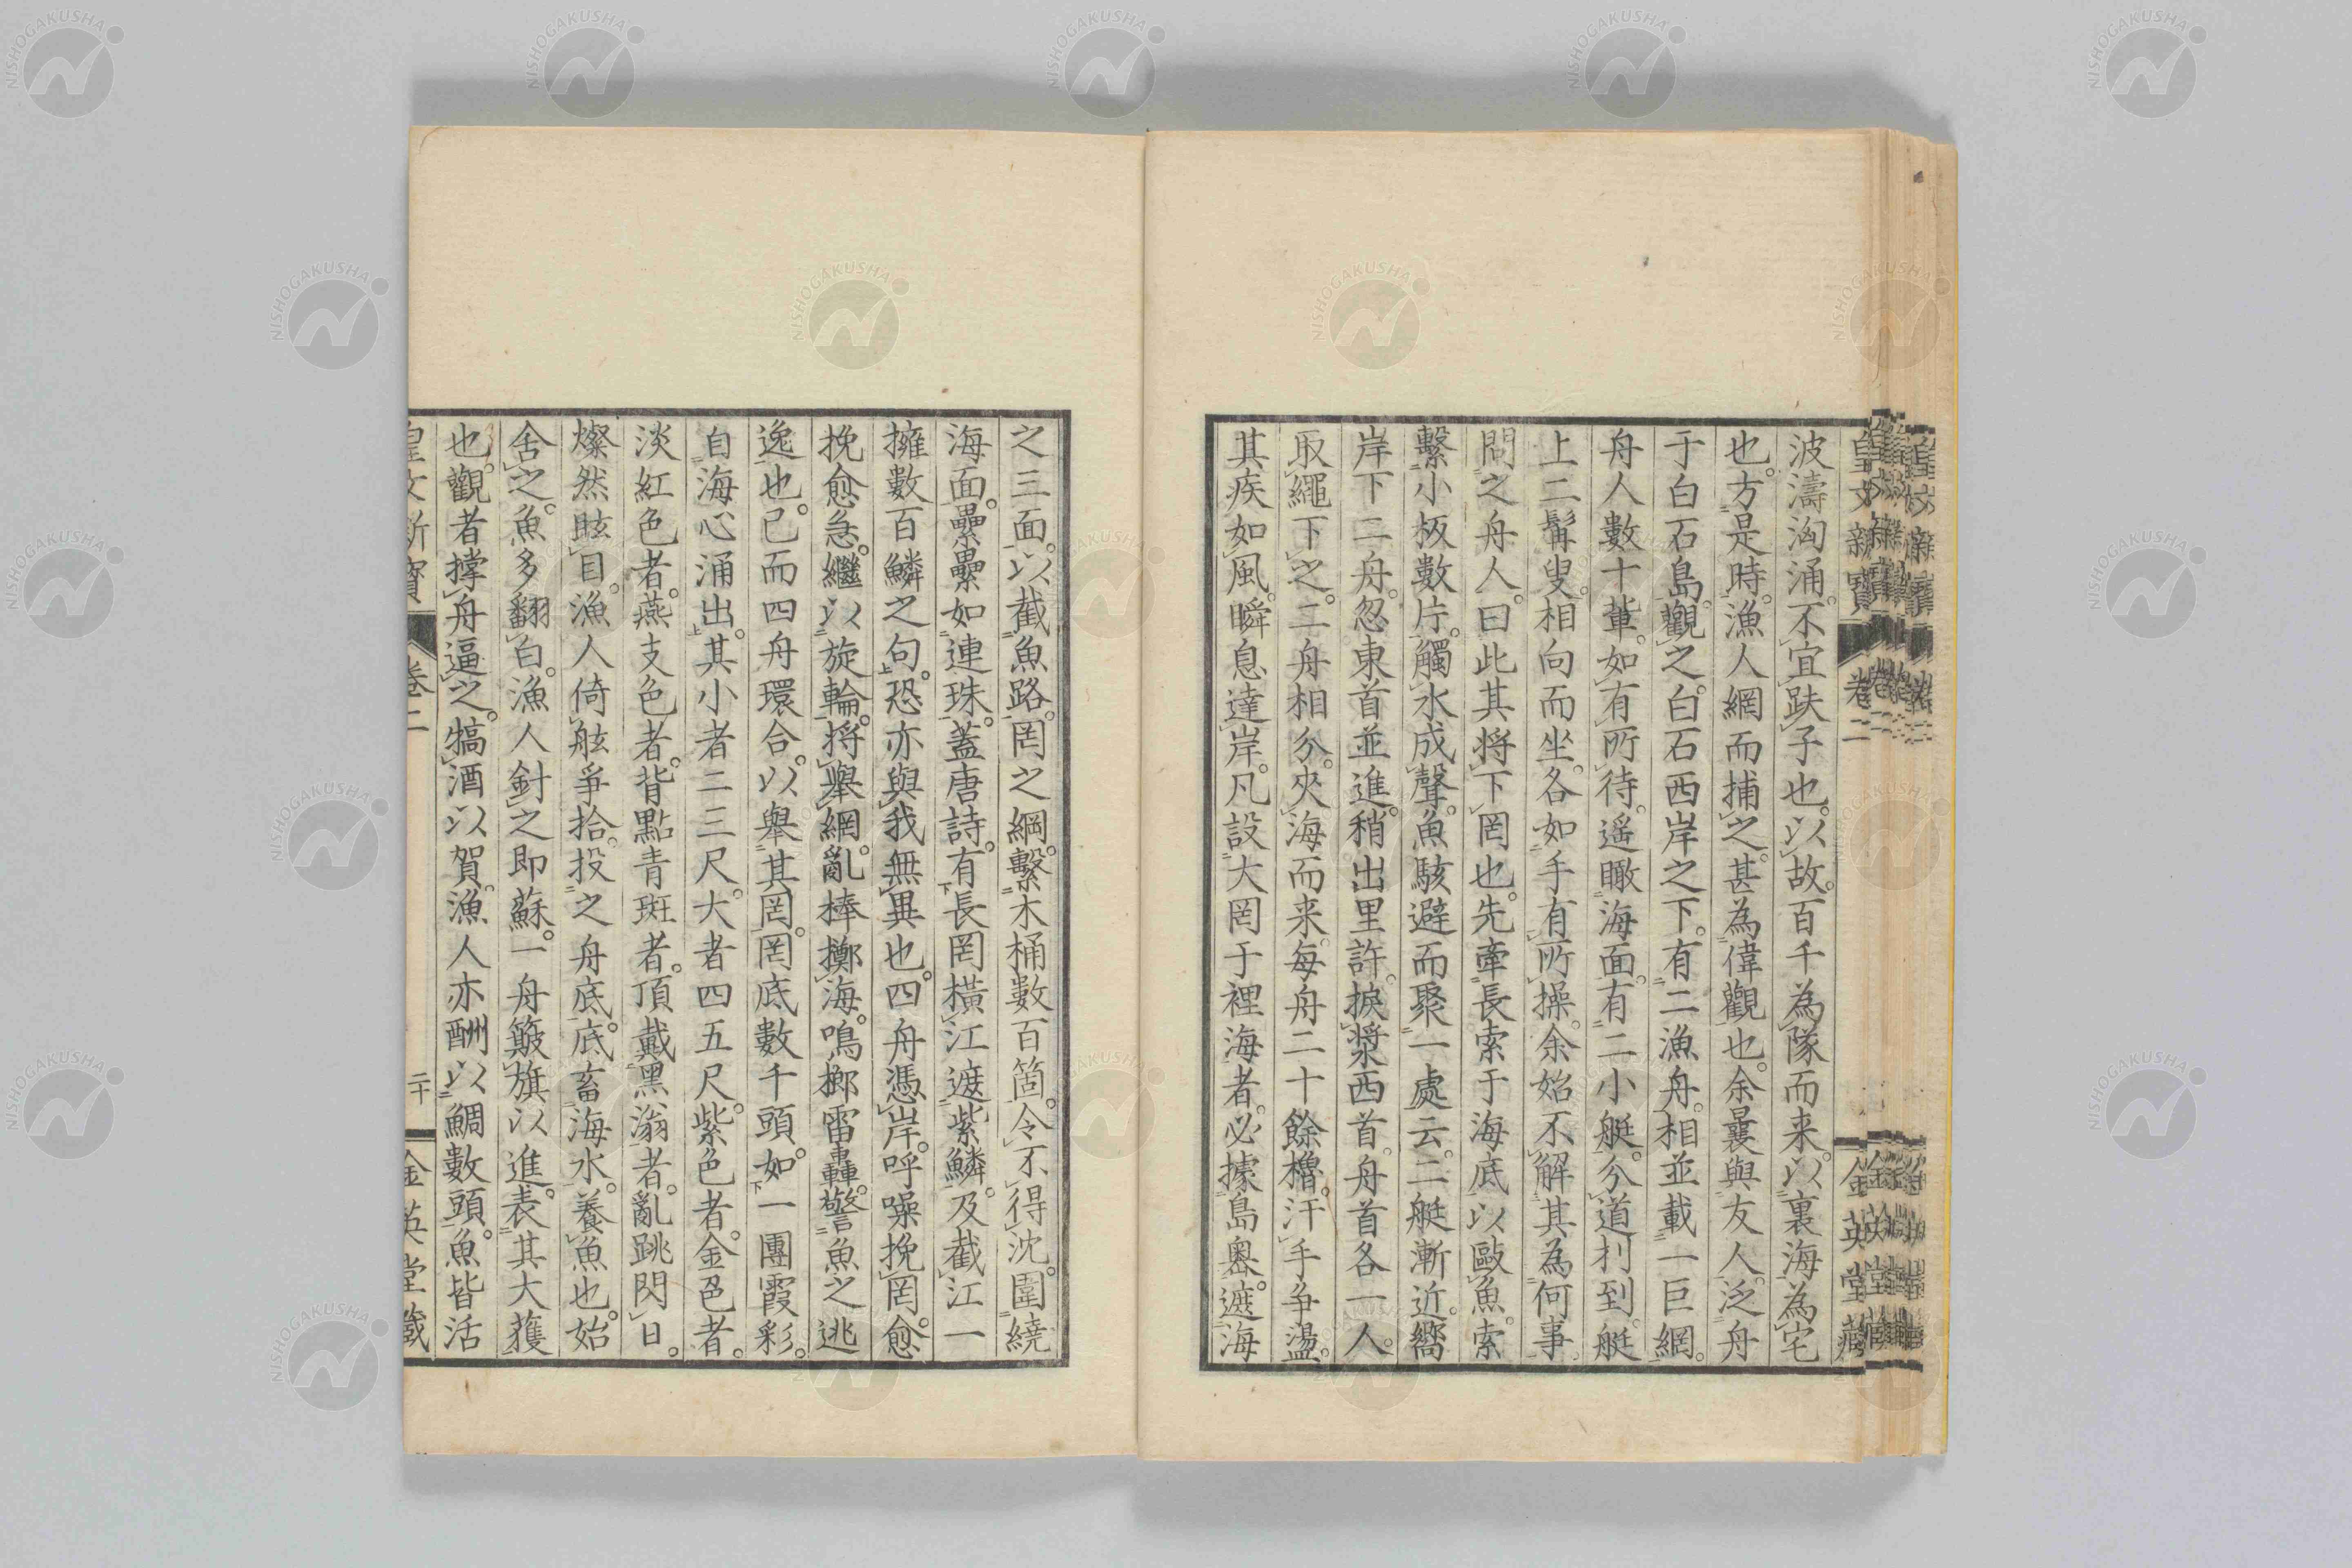 皇文新寳 卷二 金英堂藏
波濤洶涌。不宜趺子也。以故。百千為隊而来。以裏海為宅
也。方是時。漁人網而捕之。甚為偉觀也。余曩與友人。泛舟
于白石島。觀之。白石西岸之下。有二漁舟。相並載一巨網。
舟人數十輩。如有所待。遥瞰海面。有二小艇。分道刋到。艇
上二髯叟。相向而坐。各如手有所操。余始不解其為何事。
問之舟人。曰此其将下罔也。先牽長索于海底。以毆魚。索
繫小板數片。觸水成聲。魚駭避而聚一處云。二艇漸近。嚮
岸下二舟。忽東首並進。稍出里許。捩槳西首。舟首各一人。
取繩下之。二舟相分。夾海而来。每舟二十餘櫓。汗手争盪。
其疾如風。瞬息達岸。凡設大罔于裡海者。必據島奥。遮海
之三面。以截魚路。罔之綱。繫木桶數百箇。令不得沈。圍繞
海面。纍纍如連珠。蓋唐詩。有長罔橫江遮紫鱗。及截江一
擁數百鱗之句。恐亦與我無異也。四舟憑岸。呼噪挽罔。愈
挽愈急。繼以旋輪。将舉網。亂捧擲海。鳴榔雷轟。警魚之逃
逸也。已而四舟環合。以舉其罔。罔底數千頭。如一團霞彩。
自海心涌出。其小者二三尺。大者四五尺。紫色者。金色者。
淡紅色者。燕支色者。背點青斑者。頂戴黑瀚者。亂跳閃日。
燦然眩目。漁人倚舷爭拾。投之舟底。底畜海水。養魚也。始
舍之。魚多翻白。漁人針之即蘇。一舟簸旗以進。表其大獲
也。觀者撑舟逼之。犒酒以賀。漁人亦酬以鯛數頭。魚皆活
皇文新寳 卷二 二十 金英堂藏